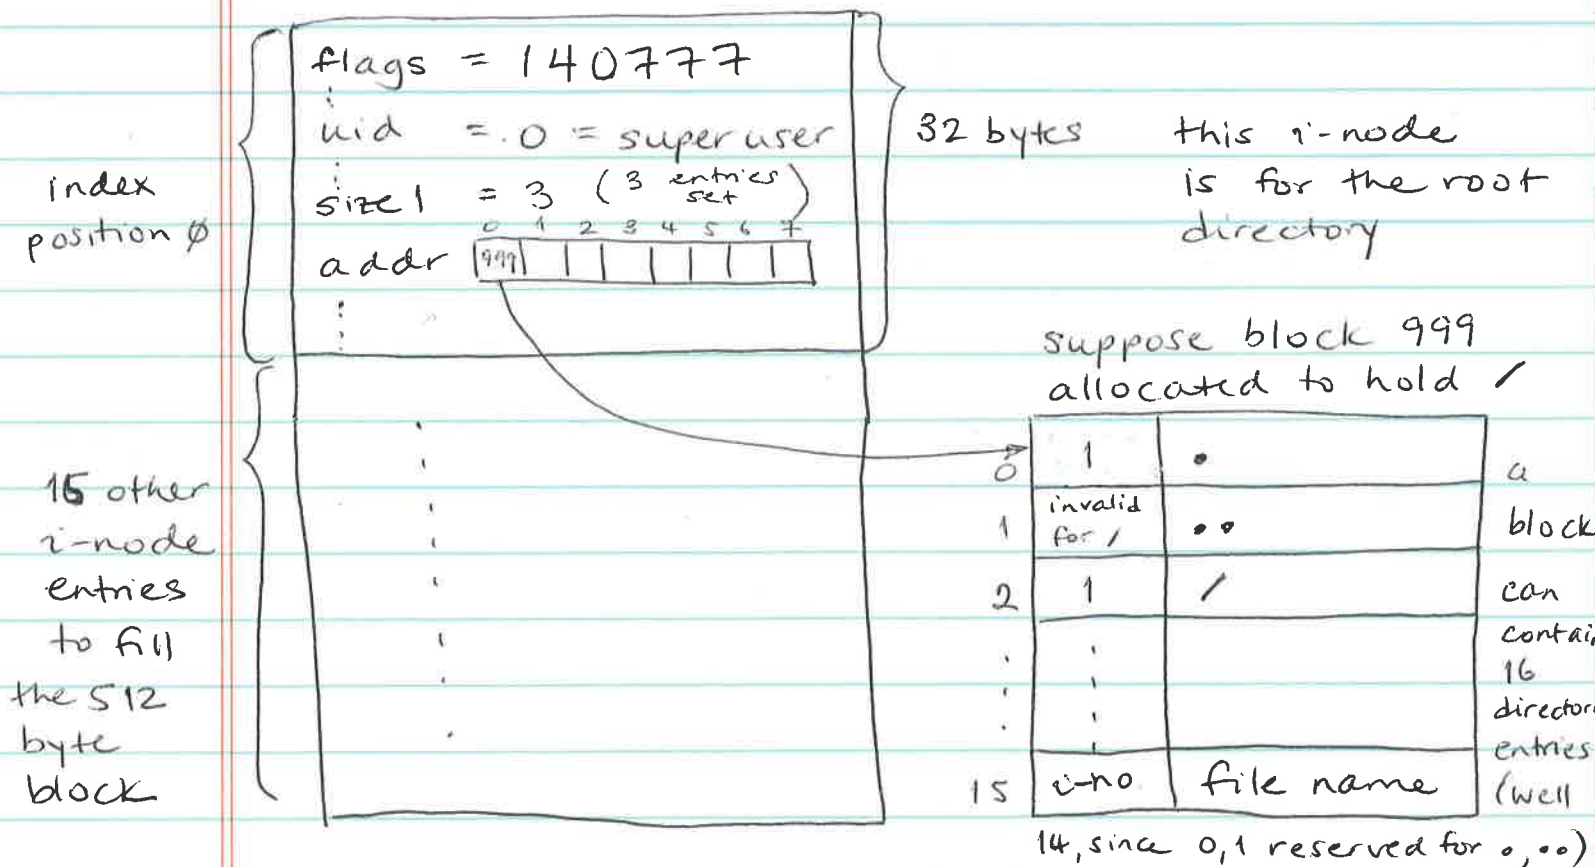 flags = 140777
uid = 0 = super user
size1 = 3 (3 entries set)
0 1 2 3 4 5 6 7
addr 999
index
position 0
32 bytes
this i-node
is for the root
directory
15 other
i-node
entries
to fill
the 512
byte
block
suppose block 999
allocated to hold /
0 1 .
1 invalid for / ..
2 1 /
15 i-no file name
a
block
can
contain
16
director
entries
(well
14, since 0,1 reserved for ., ..)